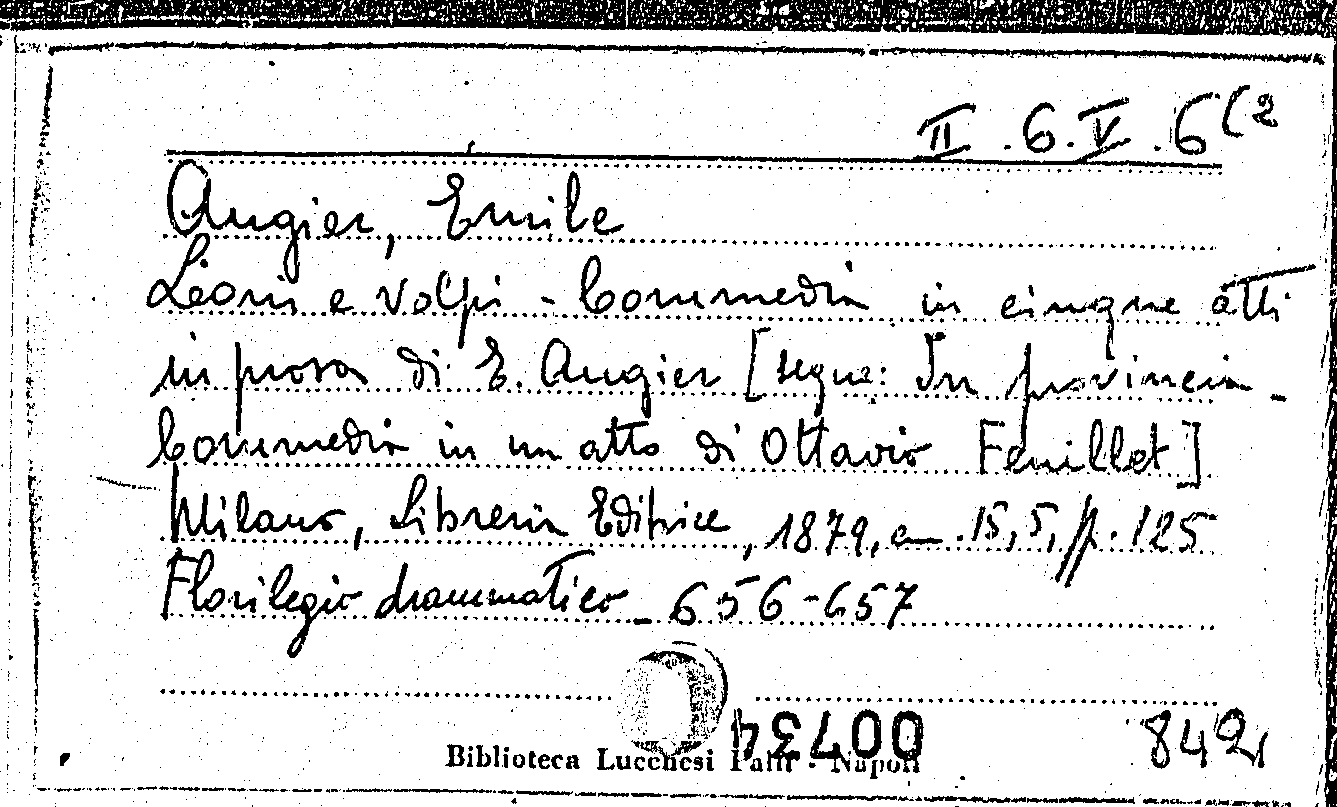 II . 6 . V . 6 (2
Augier, Emile
Leoni e volpi - Commedia in cinque atti
in prosa di E. Augier [segue: In provincia -
Commedia in un atto di Ottavio Feuillet]
Milano, Libreria Editrice, 1879, cm. 15,5, p. 125
Florilegio drammatico - 656-657
00734
Biblioteca Lucchesi Palli - Napoli
842